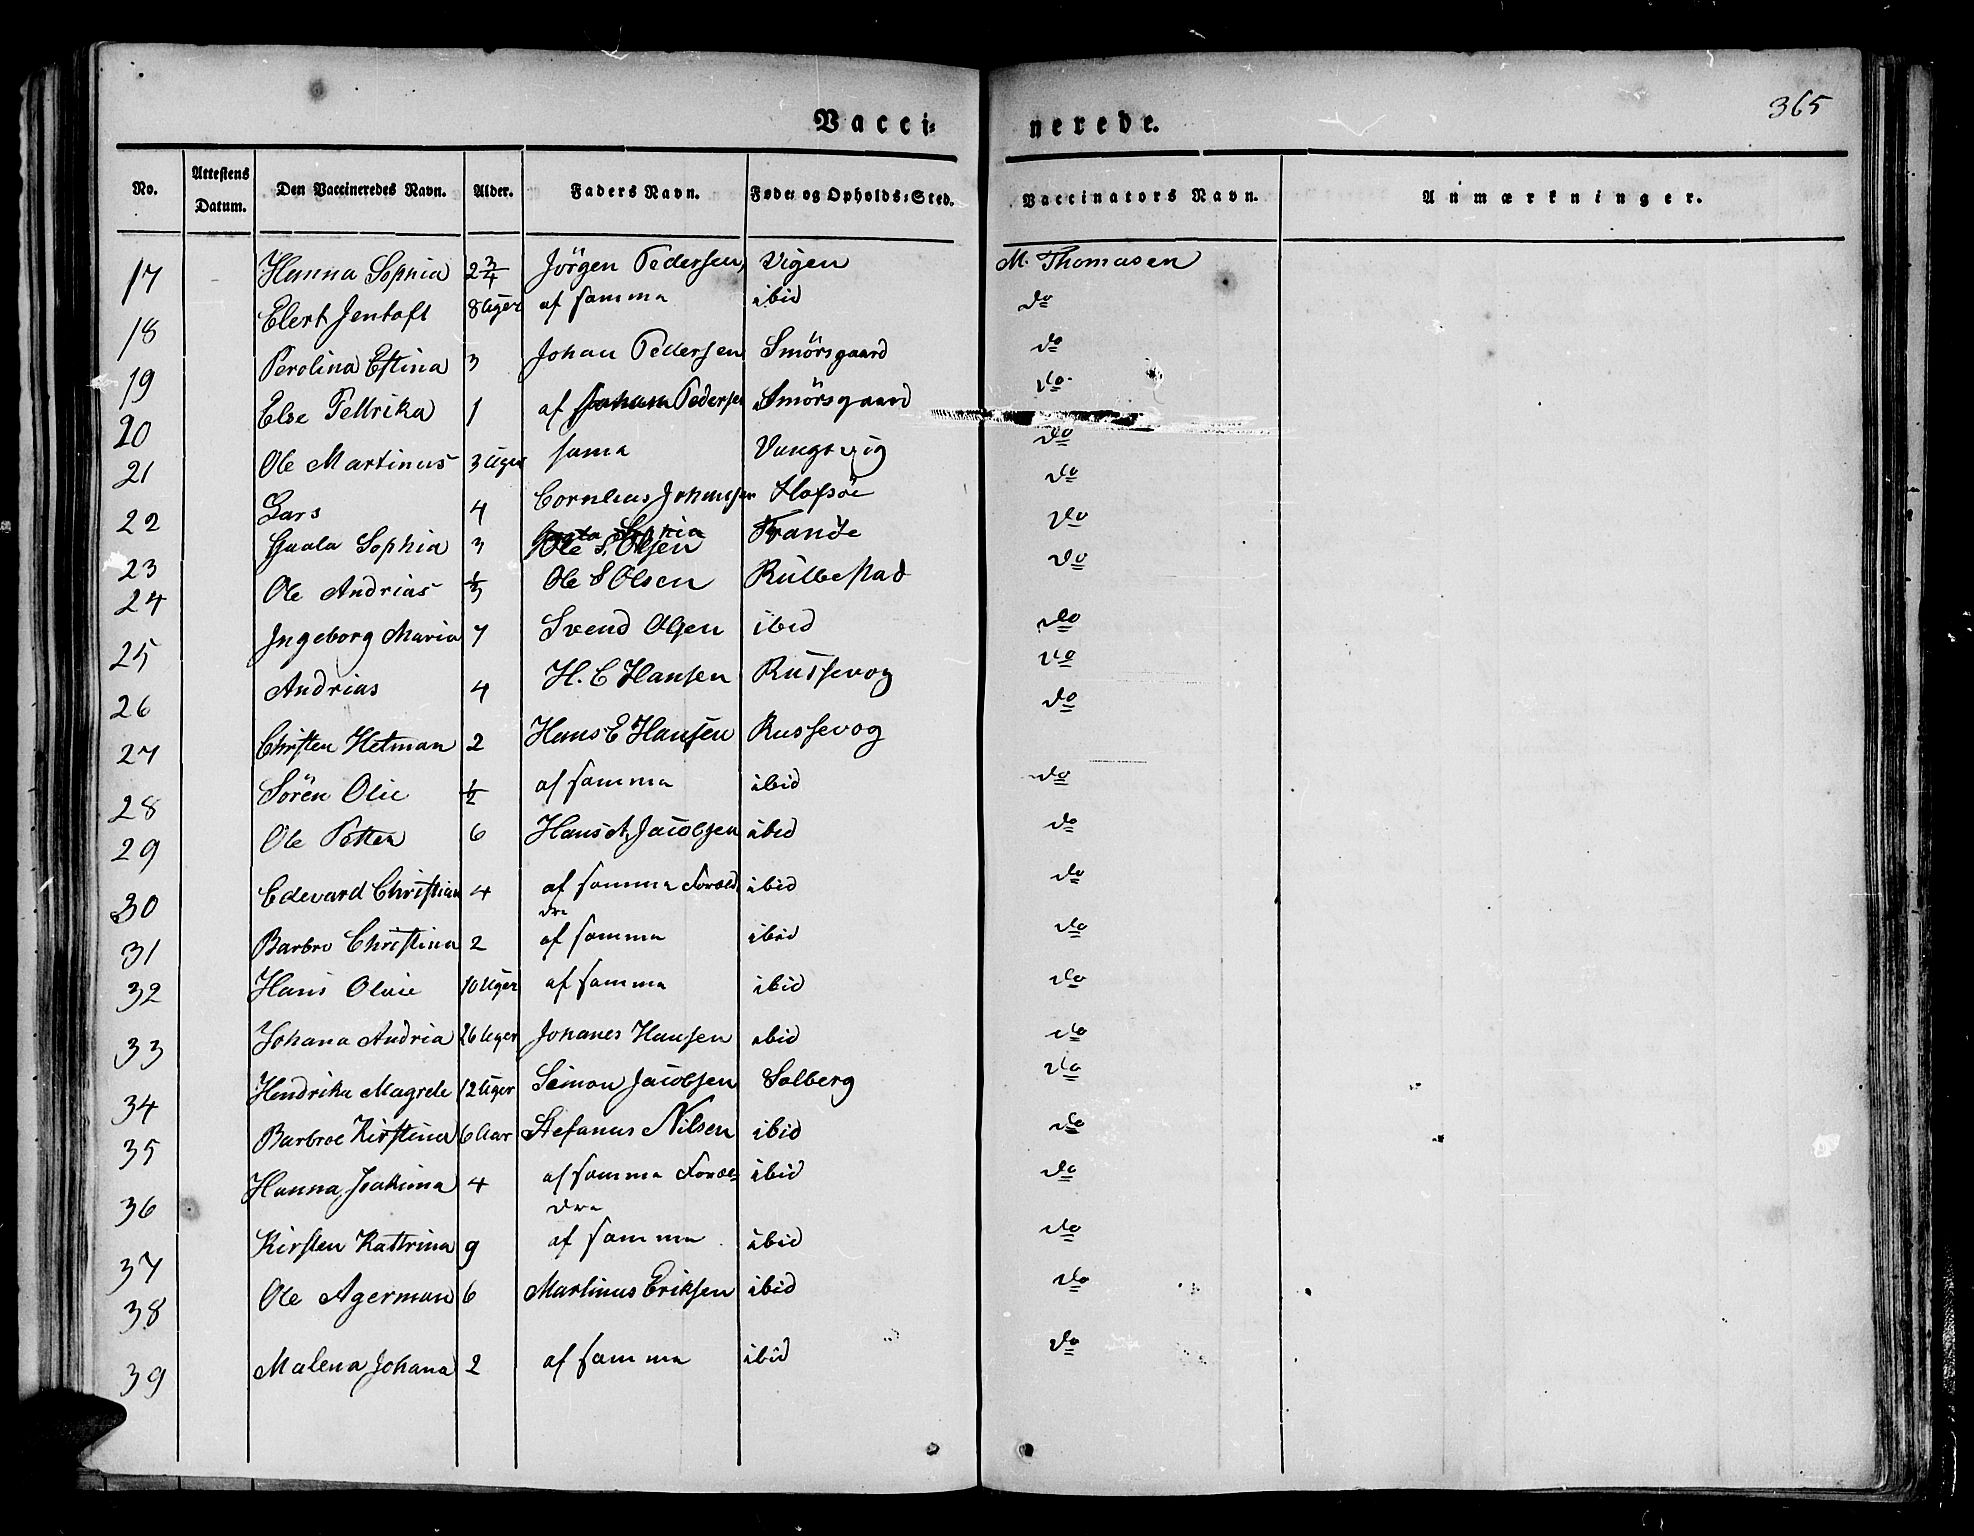 365
Vacci= nerede.
No. Attestens Datum. Den Vaccineredes Navn. Alder. Faders Navn. Føde= og Opholds=Sted. Vaccinators Navn. Anmærkninger.
17 Hanna Sophia 2 3/4 Jörgen Pedersen Vigen M. Thomasen
18 Elert Jentoft 8 Uger af samma ibid do
19 Perolina Estina 3 Johan Pedersen Smörsgaard do
20 Else Pellrika 1 af Johan Pedersen Smörsgaard do
21 Ole Martinus 3 Uger sama Vangsvig do
22 Lars 4 Cornlius Johansen Hofsöe do
23 Gaala Sophia 3 Ole S. Olsen Trande do
24 Ole Andrias 1/3 Ole S Olsen Rulbestad do
25 Jngeborg Maria 7 Svend Olsen ibid do
26 Andrias 4 H. C Hansen Russevog do
27 Christen Hetman 2 Hans E Hansen Russevog do
28 Sören Olie 1/2 af samma ibid do
29 Ole Petter 6 Hans A. Jacobsen ibid do
30 Edevard Christian 4 af samma Foræld dre ibid do
31 Barbro Christina 2 af samma ibid do
32 Hans Olaie 10 Uger af samma ibid do
33 Johana Andria 26 Uger Johanes Hansen ibid do
34 Hendrika Magrele 12 Uger Simon Jacobsen Solberg do
35 Barbroe Kirstina 6 Aar Stefanus Nilsen ibid do
36 Hanna Joakima 4 af samma Foræl= dre ibid do
37 Kirsten Kattrina 9 af samma ibid do
38 Ole Agerman 6 Martinus Eriksen ibid do
39 Malena Johana 2 af samma ibid do